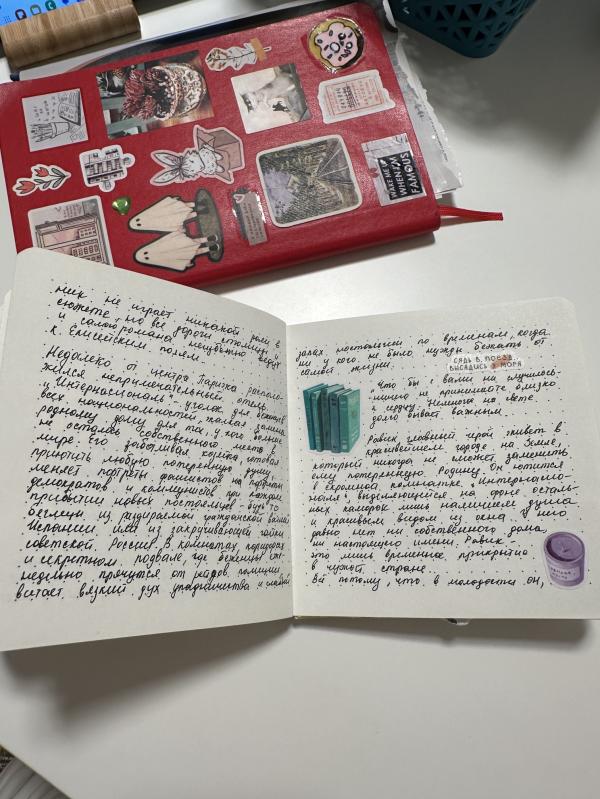 WAKE ME
WHEN I'M
FAMOUS
ник не играет никакой роли в
сюжете, но все дороги столицы и
и самого романа неизбежно ведут
к Елисейским полям.
Недалеко от центра Парижа располо-
жился непримечательный отель
"Интернасиональ" - уголок для беженцев
всех национальностей, жалкая замена
родному дому для тех, у кого больше
не осталось собственного места в
мире. Его заботливая хозяйка, готовая
приютить любую потерянную душу,
меняет портреты фашистов на портреты
демократов и коммунистов при каждом
прибытии новых постояльцев - будь то
беглецы из раздираемой гражданской войной
Испании или из закручивающей гайки
советской России. В комнатах, коридорах
и секретном подвале, где беженцы еже-
недельно прячутся от рейдов полиции,
витает вязкий дух упадничества и
залах ностальгии по временам, когда
ни у кого не было нужды бежать от
самой жизни.
СЯДЬ В ПОЕЗД,
ВЫСАДИСЬ У МОРЯ
"Что бы с вами ни случилось -
ничего не принимайте близко
к сердцу. Немногое на свете
долго бывает важным."
Равик, главный герой, живет в
красивейшем городе на Земле,
который никогда не сможет заменить
ему потерянную Родину. Он ютится
в скромной комнатке "Интернасио-
наля", выделяющейся на фоне осталь-
ных каморок лишь наличием душа
и красивым видом из окна. У него
равно нет ни собственного дома,
ни настоящего имени. Равик -
это лишь временное прикрытие
в чужой стране.
потому, что в молодости он,